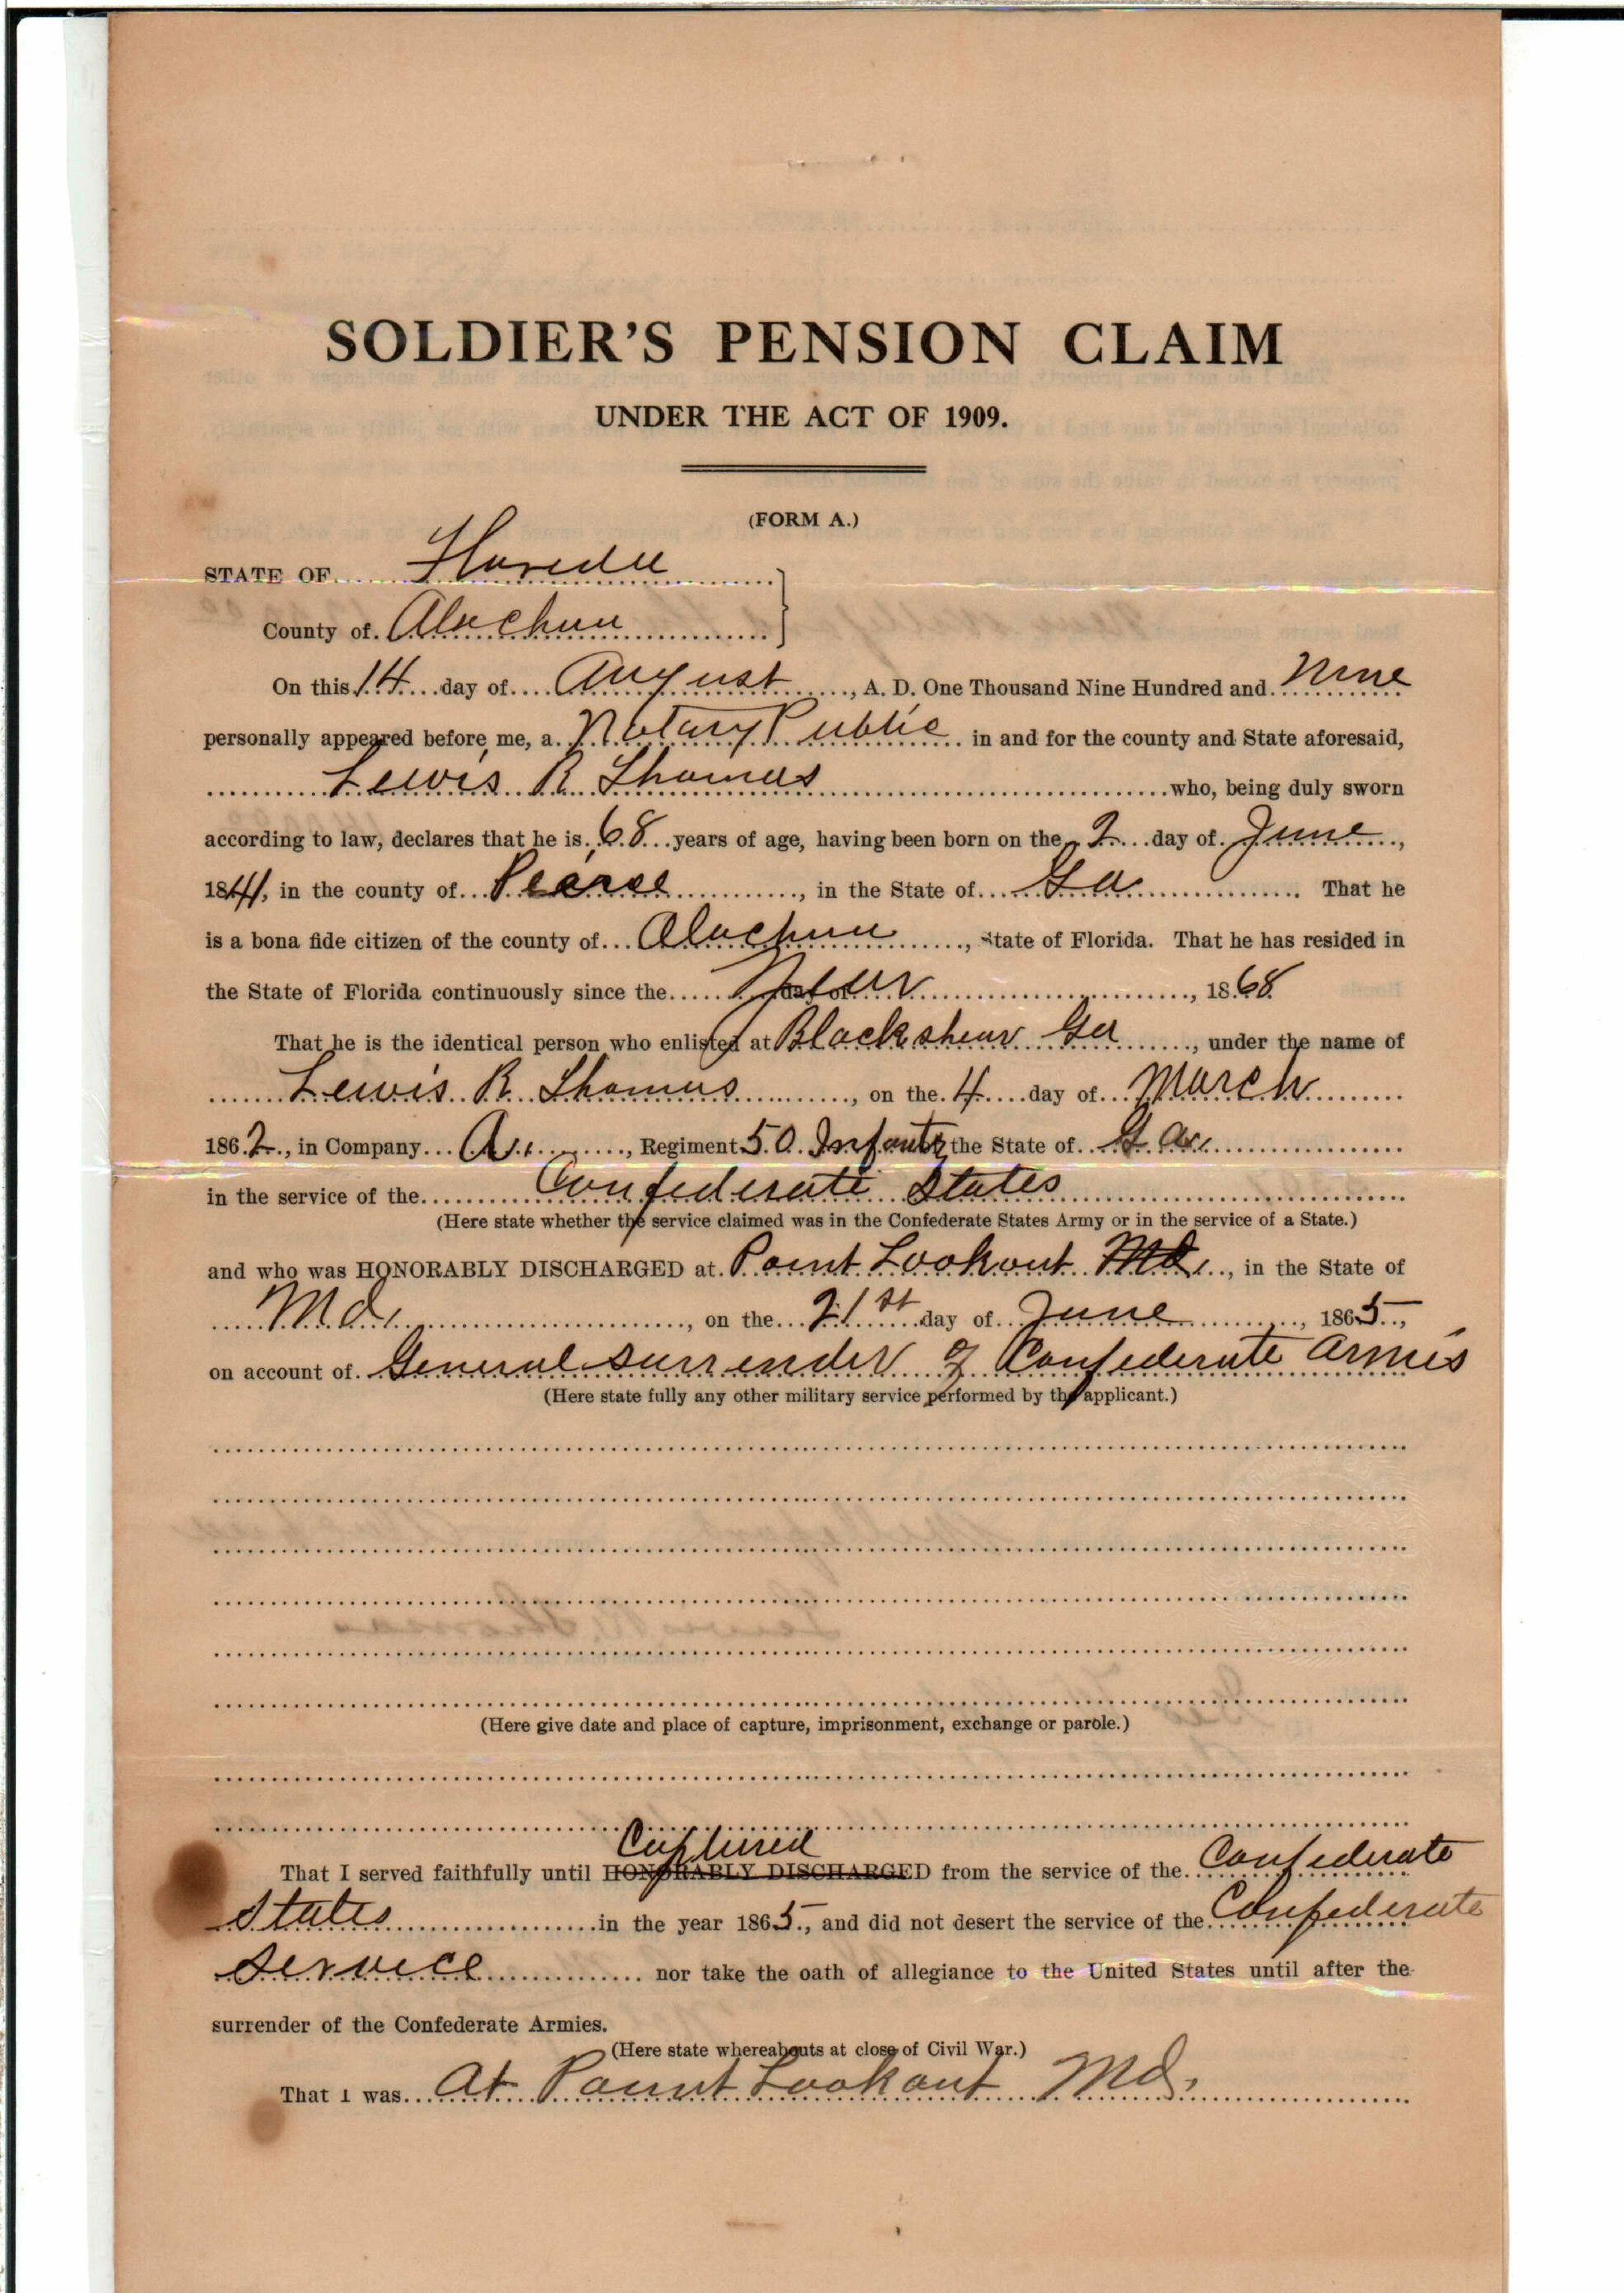 SOLDIER'S PENSION CLAIM
UNDER THE ACT OF 1909.
(FORM A.)
STATE OF Florida
County of Alachua
On this 14 day of August, A. D. One Thousand Nine Hundred and Nine
personally appeared before me, a Notary Public in and for the county and State aforesaid,
Lewis R Thomas who, being duly sworn
according to law, declares that he is 68 years of age, having been born on the 2 day of June,
1841, in the county of Pearce, in the State of Ga. That he
is a bona fide citizen of the county of Alachua, State of Florida. That he has resided in
the State of Florida continuously since the day of year, 1868
That he is the identical person who enlisted at Blackshear Ga, under the name of
Lewis R. Thomas, on the 4 day of March
1862, in Company A., Regiment 50 Infantry the State of Ga.
in the service of the Confederate States
(Here state whether the service claimed was in the Confederate States Army or in the service of a State.)
and who was HONORABLY DISCHARGED at Point Lookout Md., in the State of
Md., on the 21st day of June, 1865,
on account of General surrender of Confederate Armis
(Here state fully any other military service performed by the applicant.)
(Here give date and place of capture, imprisonment, exchange or parole.)
Captured
That I served faithfully until HONORABLY DISCHARGED from the service of the Confederate
States in the year 1865, and did not desert the service of the Confederate
service nor take the oath of allegiance to the United States until after the
surrender of the Confederate Armies.
(Here state whereabouts at close of Civil War.)
That I was At Point Lookout Md.